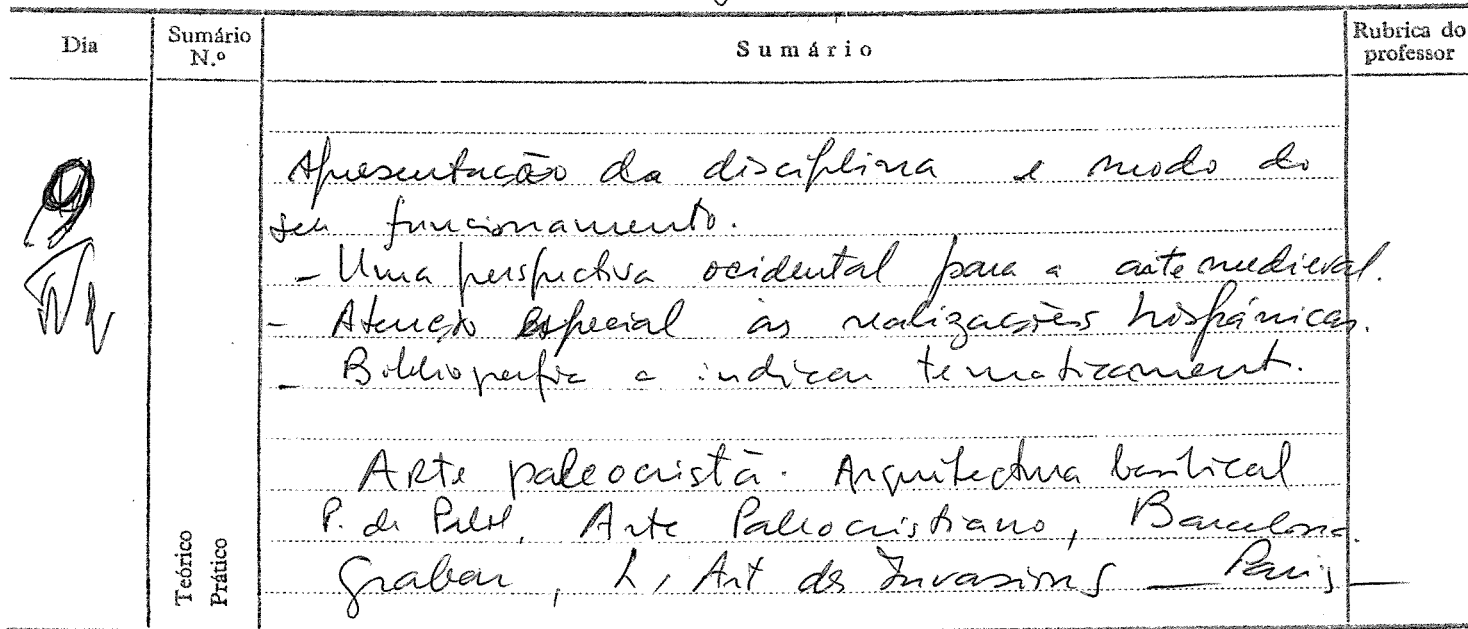 Dia
Sumário N.º
Sumário
Rubrica do professor
9
Apresentação da disciplina e modo do
seu funcionamento.
- Uma perspectiva ocidental para a arte medieval.
- Atenção especial às realizações hispânicas.
- Bibliografia a indicar tematicament.
Arte paleocristã. Arquitectura basilical
P. de Palol, Arte Paleocristiano, Barcelona.
Grabar, L, Art des Invasions — Paris
Teórico
Prático